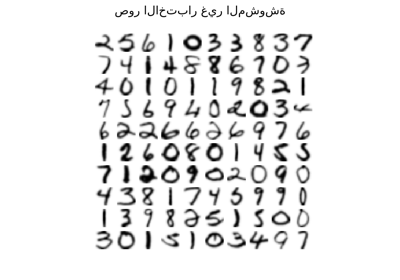 صور الاختبار غير المشوشة
2 5 6 1 0 3 3 8 3 7
7 4 1 4 8 8 6 7 0
4 0 1 0 1 1 9 8 2 1
7 5 6 9 4 0 2 0 3
6 2 2 6 6 2 6 9 7 6
1 2 6 0 8 0 1 4 5 5
7 1 2 0 9 0 2 0 9 0
4 3 8 1 7 4 5 9 9 0
1 3 9 8 2 5 1 5 0 0
3 0 1 5 1 0 3 4 9 7